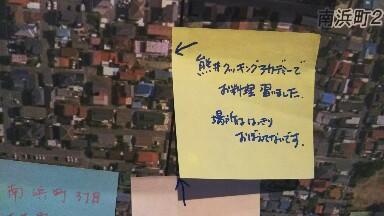 南浜町2
熊井クッキングスタヂーで
お料理習いました.
場所ははっきり
おぼえてないです.
南浜町3丁目